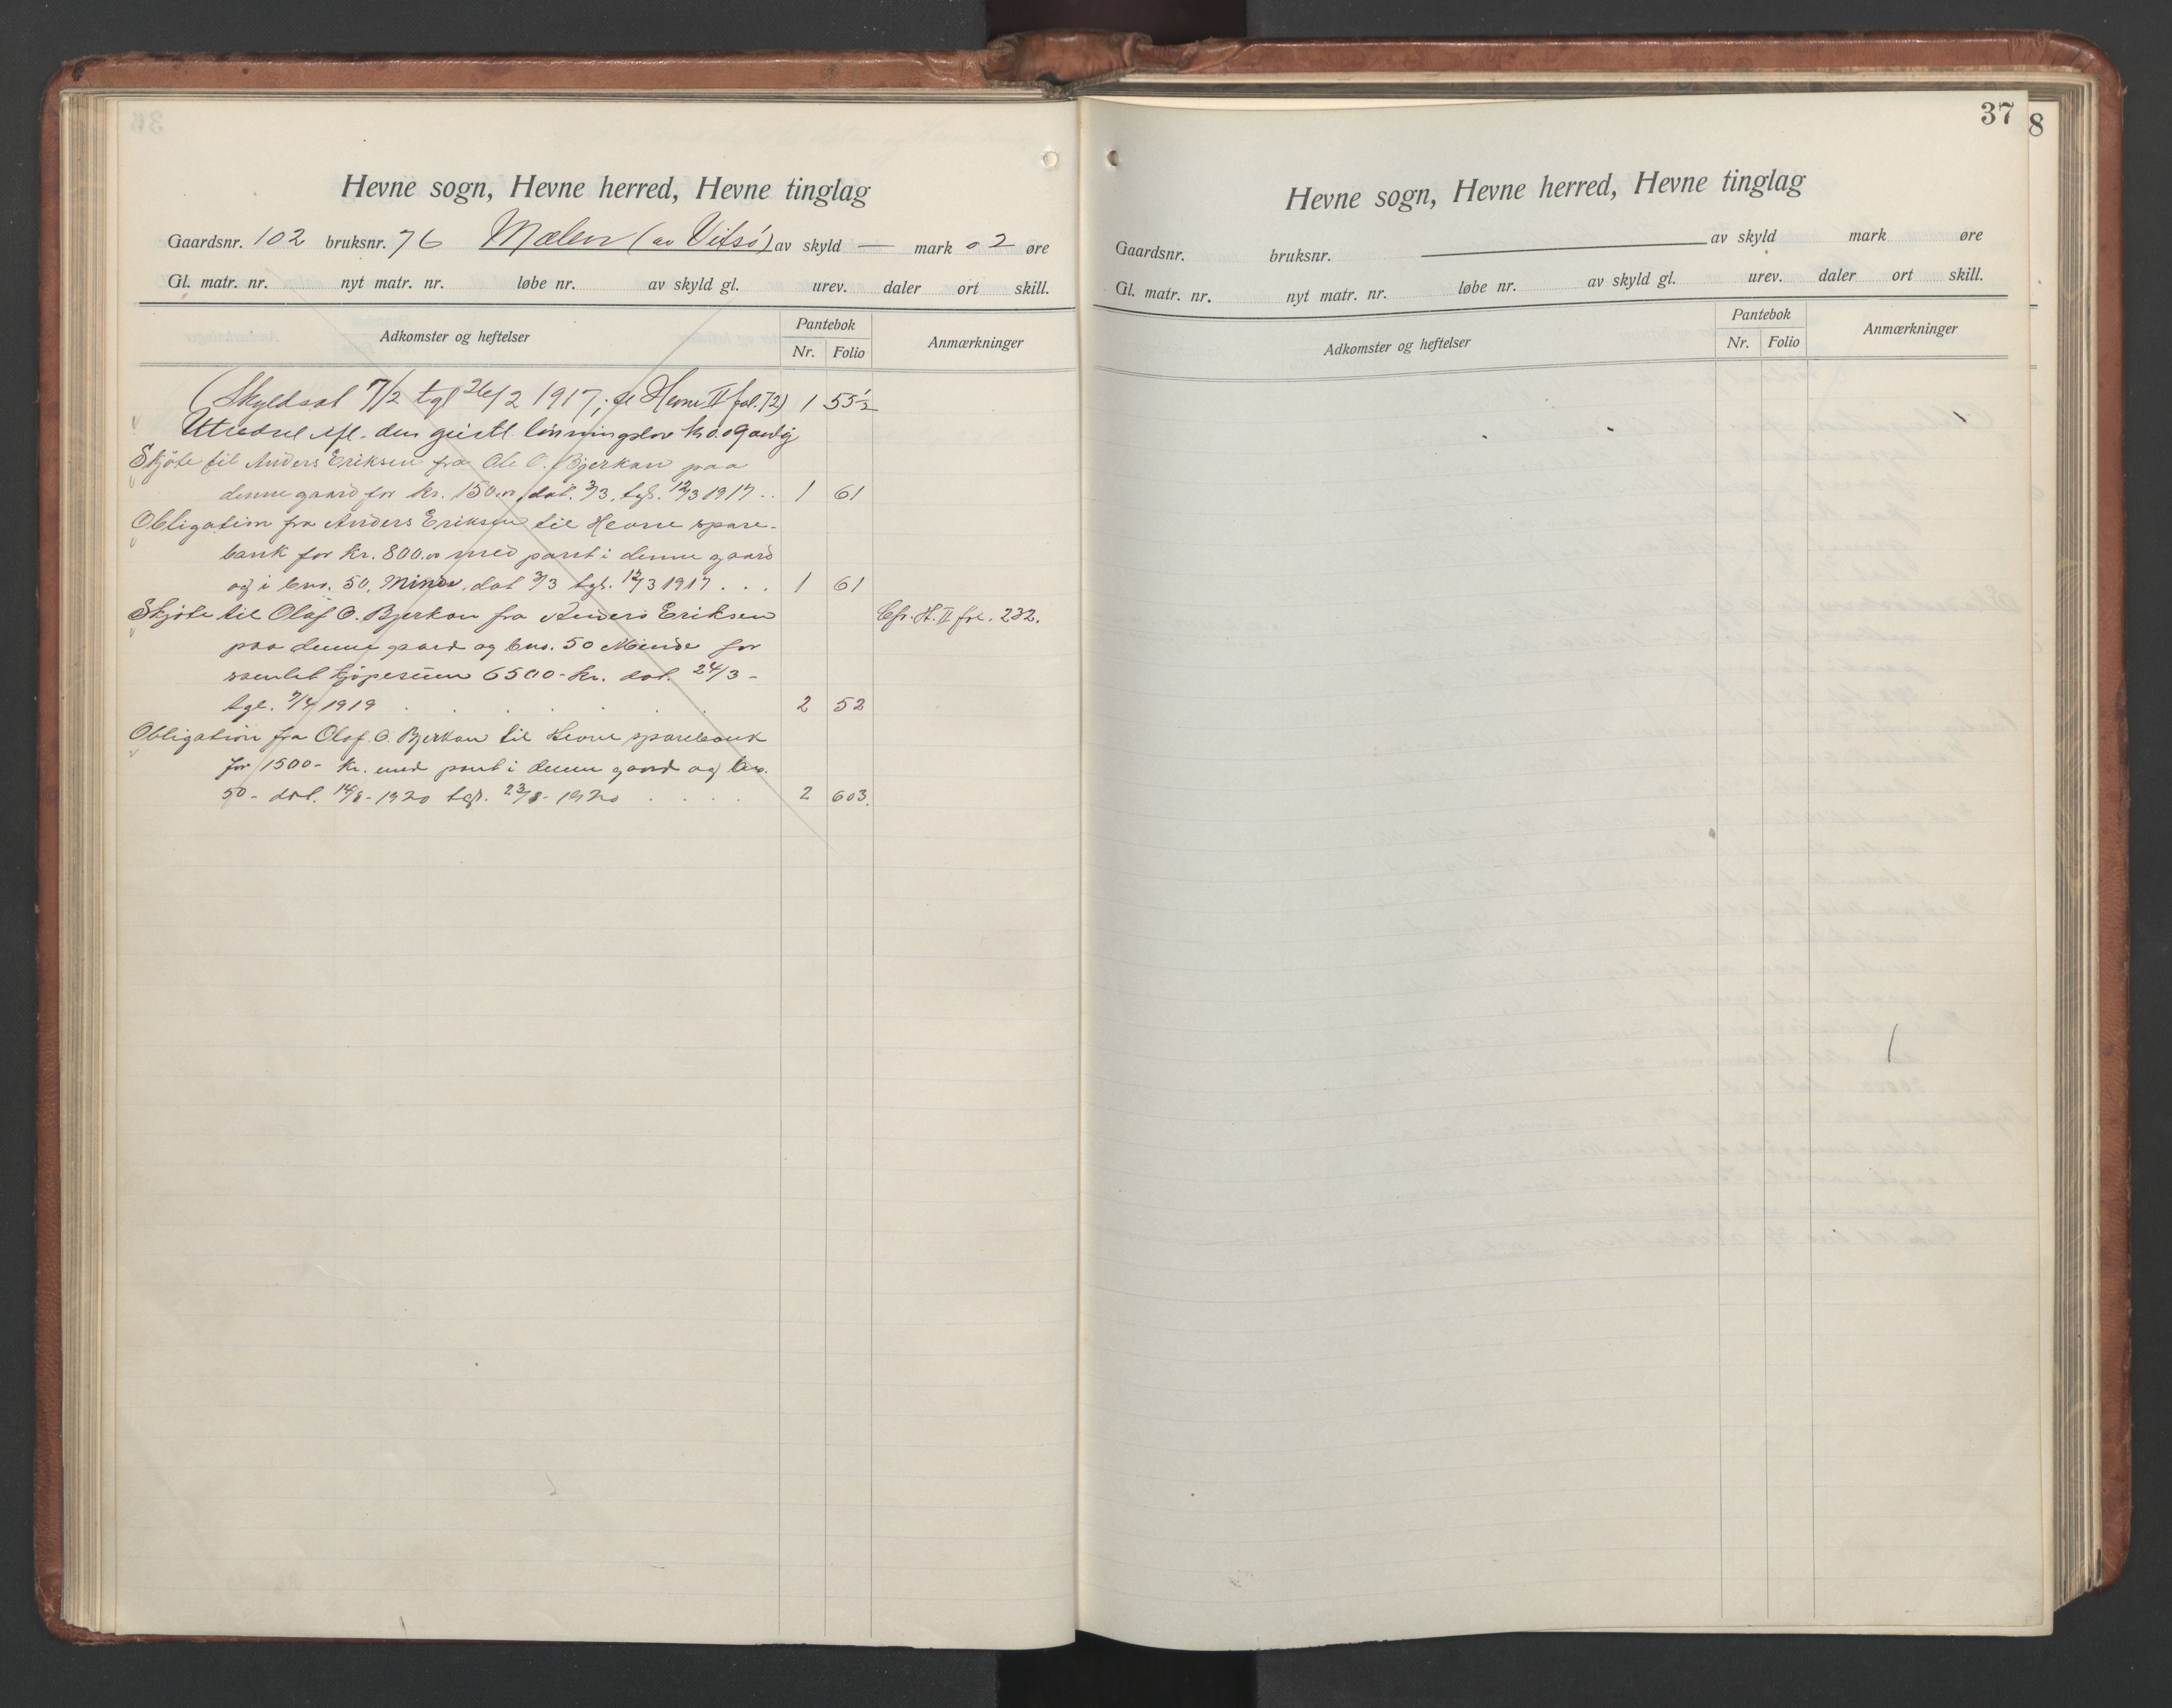 Hevne sogn, Hevne herred, Hevne tinglag
Gaardsnr. 102 bruksnr. 76 Mælen (av Vitsø) av skyld — mark 02 øre
Gl. matr. nr. nyt matr. nr. løbe nr. av skyld gl. urev. daler ort skill.
Adkomster og heftelser Pantebok Anmærkninger
Nr. Folio
(Skyldsat 7/2 tgl 26/2 1917, se Hevne II fol. 72) 1 55½
Utredsel efl. den geistl. lønningslov kr 0.09 aarlig
Skjøte til Anders Eriksen fra Ole O. Bjerkan paa
denne gaard for kr. 150.00, dat. 3/3, tgl. 12/3 1917 .. 1 61
Obligation fra Anders Eriksen til Hevne spare-
bank for kr. 800.00 med pant i denne gaard
og i bno. 50, Minde, dat 3/3 tgl. 12/3 1917 . . . 1 61
Skjøte til Olaf O. Bjerkan fra Anders Eriksen Cfr. H. II fol. 232.
paa denne gaard og bno. 50 Minde for
samlet kjøpesum 6500- kr. dat. 24/3 -
tgl. 7/4 1919 . . . . . . 2 52
Obligation fra Olaf O. Bjerkan til Hevne sparebank
for 1500- kr. med pant i denne gaard og bno.
50- dat. 14/8- 1920 tgl. 23/8- 1920 . . . . 2 603.
37
8
Hevne sogn, Hevne herred, Hevne tinglag
Gaardsnr. bruksnr. av skyld mark øre
Gl. matr. nr. nyt matr. nr. løbe nr. av skyld gl. urev. daler ort skill.
Adkomster og heftelser Pantebok Anmærkninger
Nr. Folio